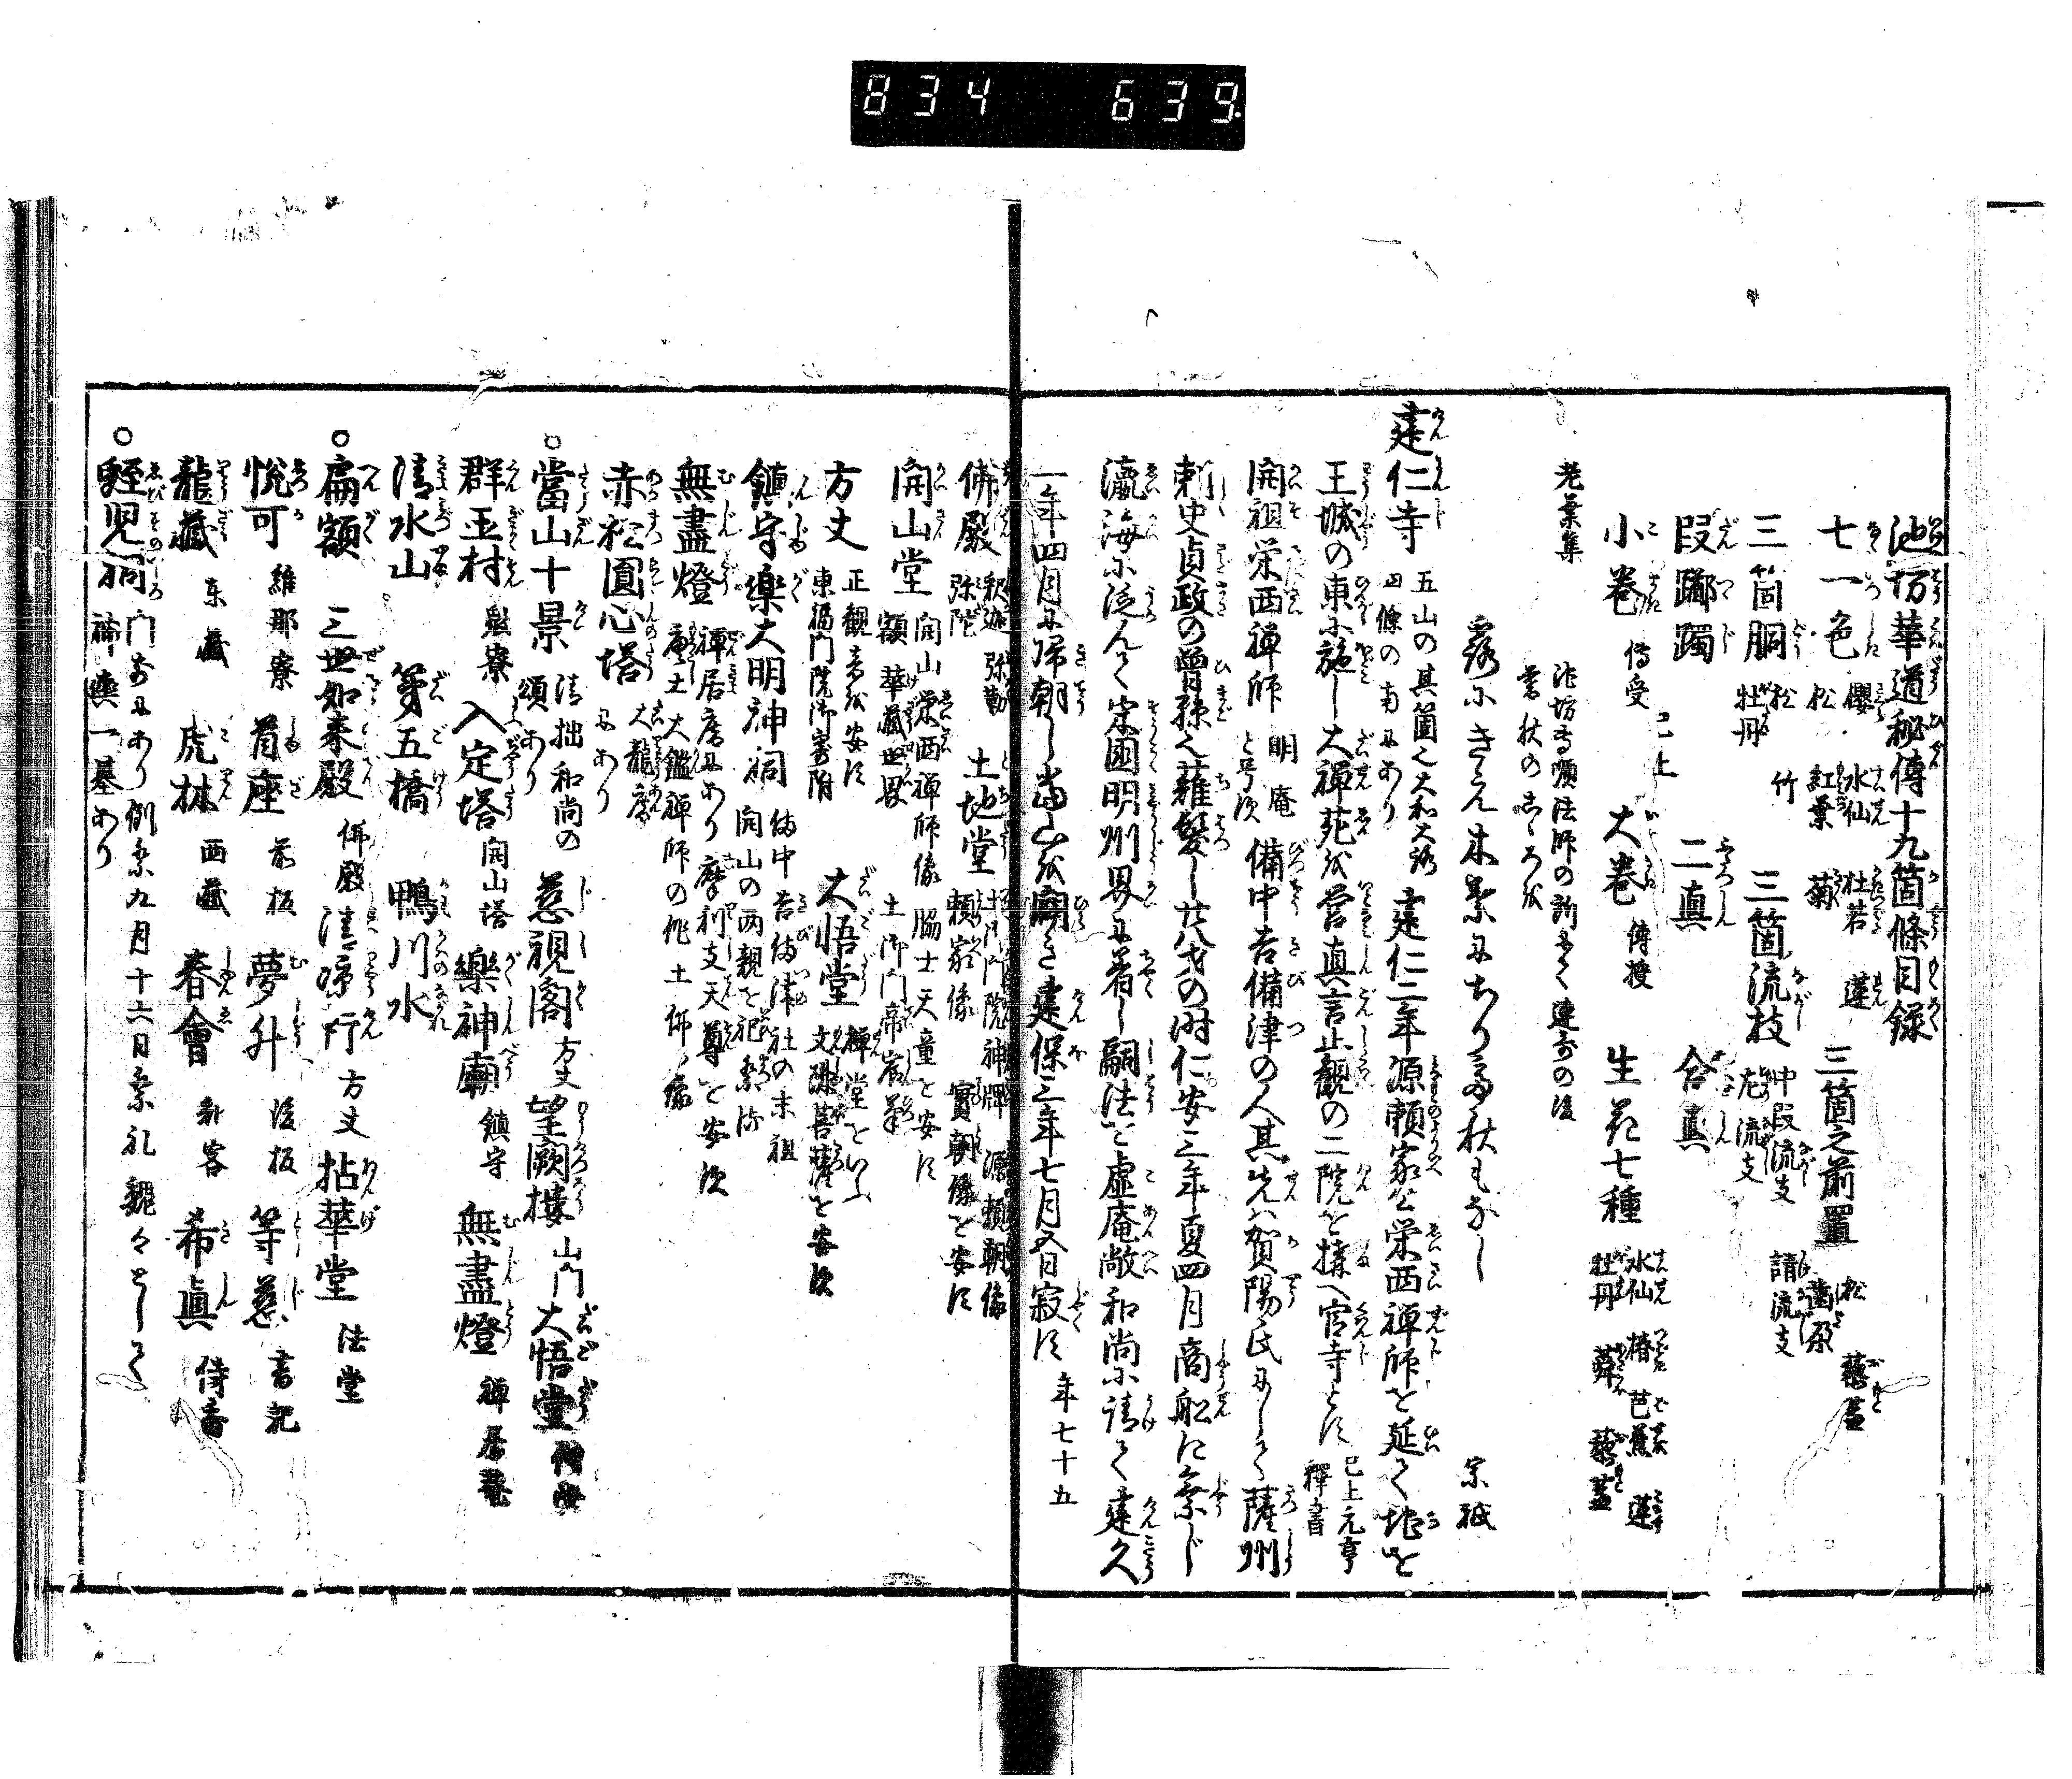 834 639.
池坊華道秘傳十九箇條目録
七一色 櫻 松 水仙 紅葉 杜若 菊 蓮 三箇之前置 松 薔
三箇胴 松 牡丹 竹 三箇流枝 中段流支 流支 請流支
段躑躅 二真 合真
已上
小巻 傳受 大巻 傳授 生花七種 水仙 牡丹 椿 芭蕉 蓮
老葉集
池坊専順法師の 連哥の後
暮秋のこゝろを
宗祇
建仁寺 五山の其箇之大和大路 四條の南にあり 建仁二年源頼家公栄西禅師を延て地を
王城の東に施し大禅苑を営真言止観の二院を搆へ官寺とす 已上元亨釋書
開祖栄西禅師 明庵と号次 備中吉備津の人其先ハ賀陽氏にして薩州
刺史貞政の曽孫也薙髪し廿八才の時仁安三年夏四月商舩に乗じ
瀛海に泛んて宋國明州界に着し嗣法を虚庵敞和尚に請て建久
二年四月に帰朝し當山を開き建保三年七月五日寂す 年七十五
佛殿 釈迦 弥陀 弥勒 土地堂 土御門院神牌 源頼朝像 頼家像 實朝像を安す
開山堂 開山栄西禅師像 脇士天童を安す 額 華藏世界 土御門帝宸筆
方丈 正観音を安す 東福門院御寄附 大悟堂 禅堂をいふ 文殊菩薩を安次
鎮守樂大明神祠 備中吉備津社の末祖 開山の両親を祀
無盡燈 禅居庵にあり摩利支天尊を安次 大鑑禅師の作土佛像
赤松圓心塔 大龍庵にあり
○當山十景 清拙和尚の頌あり 慈視閣 方丈 望闕樓 山門 大悟堂
群玉村 衆寮 入定塔 開山塔 樂神廟 鎮守 無盡燈 禅居庵
清水山 第五橋 鴨川水
○扁額 三世如来殿 佛殿 清涼軒 方丈 拈華堂 法堂
悦可 維那寮 首座 前板 夢升 後板 等慈 書記
龍藏 東藏 虎林 西藏 春會 知客 希眞 侍香
○蛭児祠 門前にあり例祭九月十六日祭礼 神輿一基あり